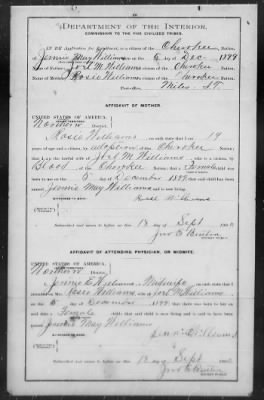 DEPARTMENT OF THE INTERIOR.
COMMISSION TO THE FIVE CIVILIZED TRIBES.
of a citizen of the Cherokee Nation,
Jennie May Williams on the 5 day of Dec 1899
Name of Father: Joel M. Williams a citizen of the Cherokee Nation.
Name of Mother: Rosie Williams a citizen of the Cherokee Nation.
Postoffice Miles I.T.
AFFIDAVIT OF MOTHER.
UNITED STATES OF AMERICA,
Northern District.
I, Rosie Williams on oath state that I am 19
years of age and a citizen, by adoption of the Cherokee Nation,
that I am the lawful wife of Joel M Williams who is a citizen, by
Blood of the Cherokee Nation, that a Female was
born to me on the 5 day of December 1899 that said child has been
named Jennie May Williams and is now living.
Rosie Williams
Subscribed and sworn to before me this 13 day of Sept
NOTARY PUBLIC.
AFFIDAVIT OF ATTENDING PHYSICIAN, OR MIDWIFE.
UNITED STATES OF AMERICA,
Northern District.
I, Jennie E Williams a Midwife on oath state that I
attended on Mrs. Rosie Williams wife of Joel M Williams on the
5 day of December 1899 that there was born to her on said
date a Female child; that said child is now living and is said to have been
named Jennie May Williams
Jennie E Williams
Subscribed and sworn to before me this 13 day of Sept
NOTARY PUBLIC.